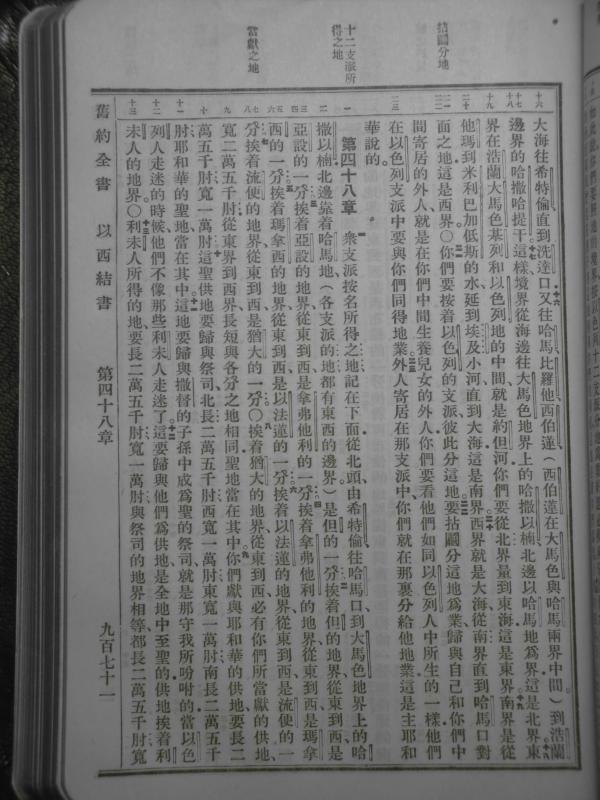 拈鬮分地
十二支派所
得之地
當獻之地
大海往希特倫直到洗達口又往哈馬比羅他西伯蓮（西伯蓮在大馬色與哈馬兩界中間）到浩蘭
邊界的哈撒哈提干這樣境界從海邊往大馬色地界上的哈撒以楠北邊以哈馬地爲界這是北界東
界在浩蘭大馬色基列和以色列地的中間就是約但河你們要從北界量到東海這是東界南界是從
他瑪到米利巴加低斯的水延到埃及小河直到大海這是南界西界就是大海從南界直到哈馬口對
面之地這是西界○你們要按着以色列的支派彼此分這地要拈鬮分這地爲業歸與自己和你們中
間寄居的外人就是在你們中間生養兒女的外人你們要看他們如同以色列人中所生的一樣他們
在以色列支派中要與你們同得地業外人寄居在那支派中你們就在那裏分給他地業這是主耶和
華說的
第四十八章 衆支派按名所得之地記在下面從北頭由希特倫往哈馬口到大馬色地界上的哈
撒以楠北邊靠着哈馬地（各支派的地都有東西的邊界）是但的一分挨着但的地界從東到西是
亞設的一分挨着亞設的地界從東到西是拿弗他利的一分挨着拿弗他利的地界從東到西是瑪拿
西的一分挨着瑪拿西的地界從東到西是以法蓮的一分挨着以法蓮的地界從東到西是流便的一
分挨着流便的地界從東到西是猶大的一分○挨着猶大的地界從東到西必有你們所當獻的供地
寬二萬五千肘從東界到西界長短與各分之地相同聖地當在其中你們獻與耶和華的供地要長二
萬五千肘寬一萬肘這聖供地要歸與祭司北長二萬五千肘西寬一萬肘東寬一萬肘南長二萬五千
肘耶和華的聖地當在其中這地要歸與撒督的子孫中成爲聖的祭司就是那守我所吩咐的當以色
列人走迷的時候他們不像那些利未人走迷了這要歸與他們爲供地是全地中至聖的供地挨着利
未人的地界○利未人所得的地要長二萬五千肘寬一萬肘與祭司的地界相等都長二萬五千肘寬
舊約全書 以西結書 第四十八章 九百七十一